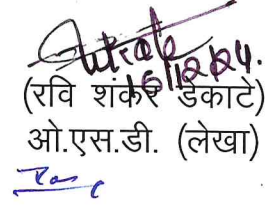 16/12/24.
(रवि शंकर डेकाटे)
ओ.एस.डी. (लेखा)